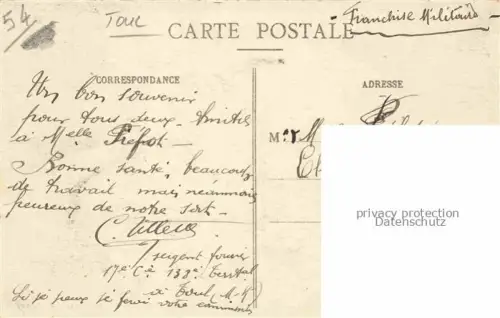 54
Toul
- Franchise Militaire -
CARTE POSTALE
CORRESPONDANCE
ADRESSE
Un bon souvenir
pour tous deux. Amitiés
à Melle
Bonne santé, beaucoup
de travail mais néanmoins
peureux de notre sort -
C.
sergent fourrier
17e Cie 138e Territal
à Toul (M-M)
Si je peux je ferai votre commission
privacy protection
Datenschutz